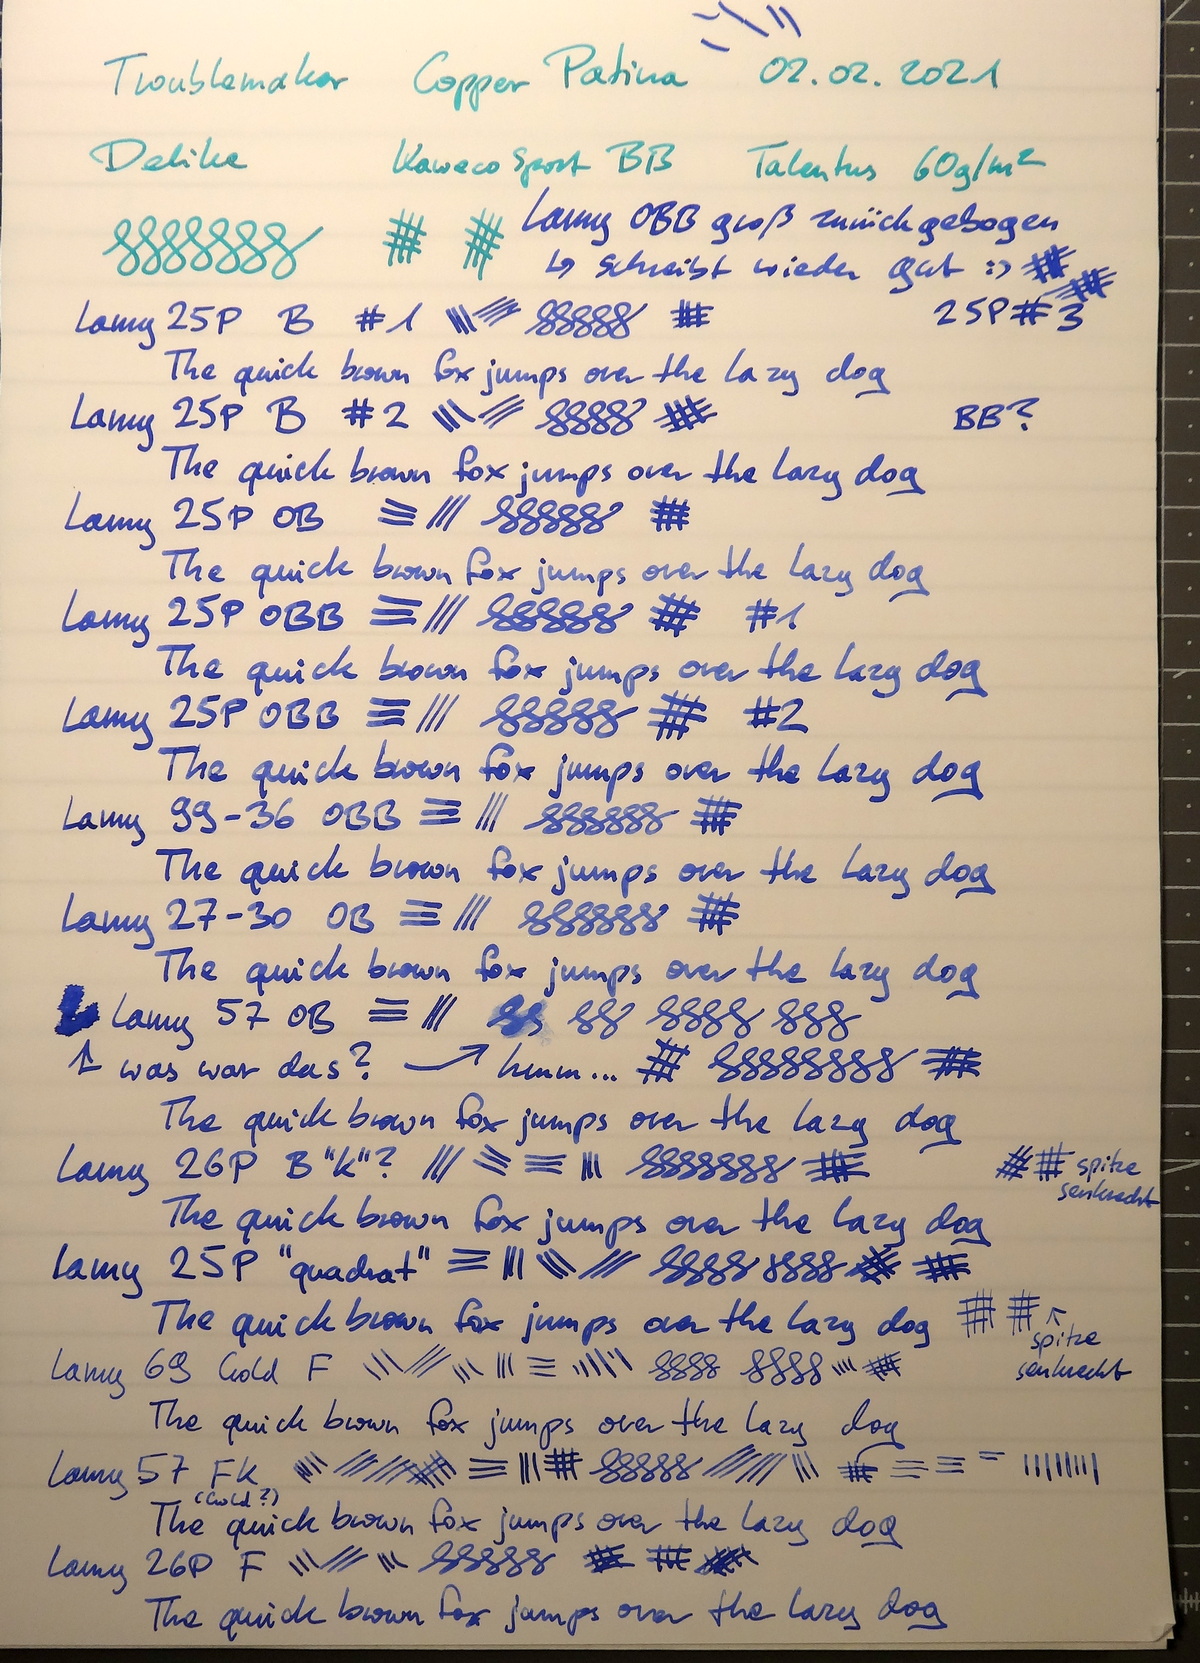 Troublemaker Copper Patina 02.02.2021
Delike Kaweco Sport BB Talentus 60g/m²
Lamy OBB groß zurückgebogen
↳ schreibt wieder gut :)
Lamy 25P B #1 25P #3
The quick brown fox jumps over the lazy dog
Lamy 25P B #2 BB?
The quick brown fox jumps over the lazy dog
Lamy 25P OB
The quick brown fox jumps over the lazy dog
Lamy 25P OBB #1
The quick brown fox jumps over the lazy dog
Lamy 25P OBB #2
The quick brown fox jumps over the lazy dog
Lamy 99-36 OBB
The quick brown fox jumps over the lazy dog
Lamy 27-30 OB
The quick brown fox jumps over the lazy dog
Lamy 57 OB
↑ was war das? → hmm...
The quick brown fox jumps over the lazy dog
Lamy 26P B "K"? spitze
senkrecht
The quick brown fox jumps over the lazy dog
Lamy 25P "quadrat"
The quick brown fox jumps over the lazy dog
↖ spitze
senkrecht
Lamy 69 Gold F
The quick brown fox jumps over the lazy dog
Lamy 57 FK
(Gold?)
The quick brown fox jumps over the lazy dog
Lamy 26P F
The quick brown fox jumps over the lazy dog